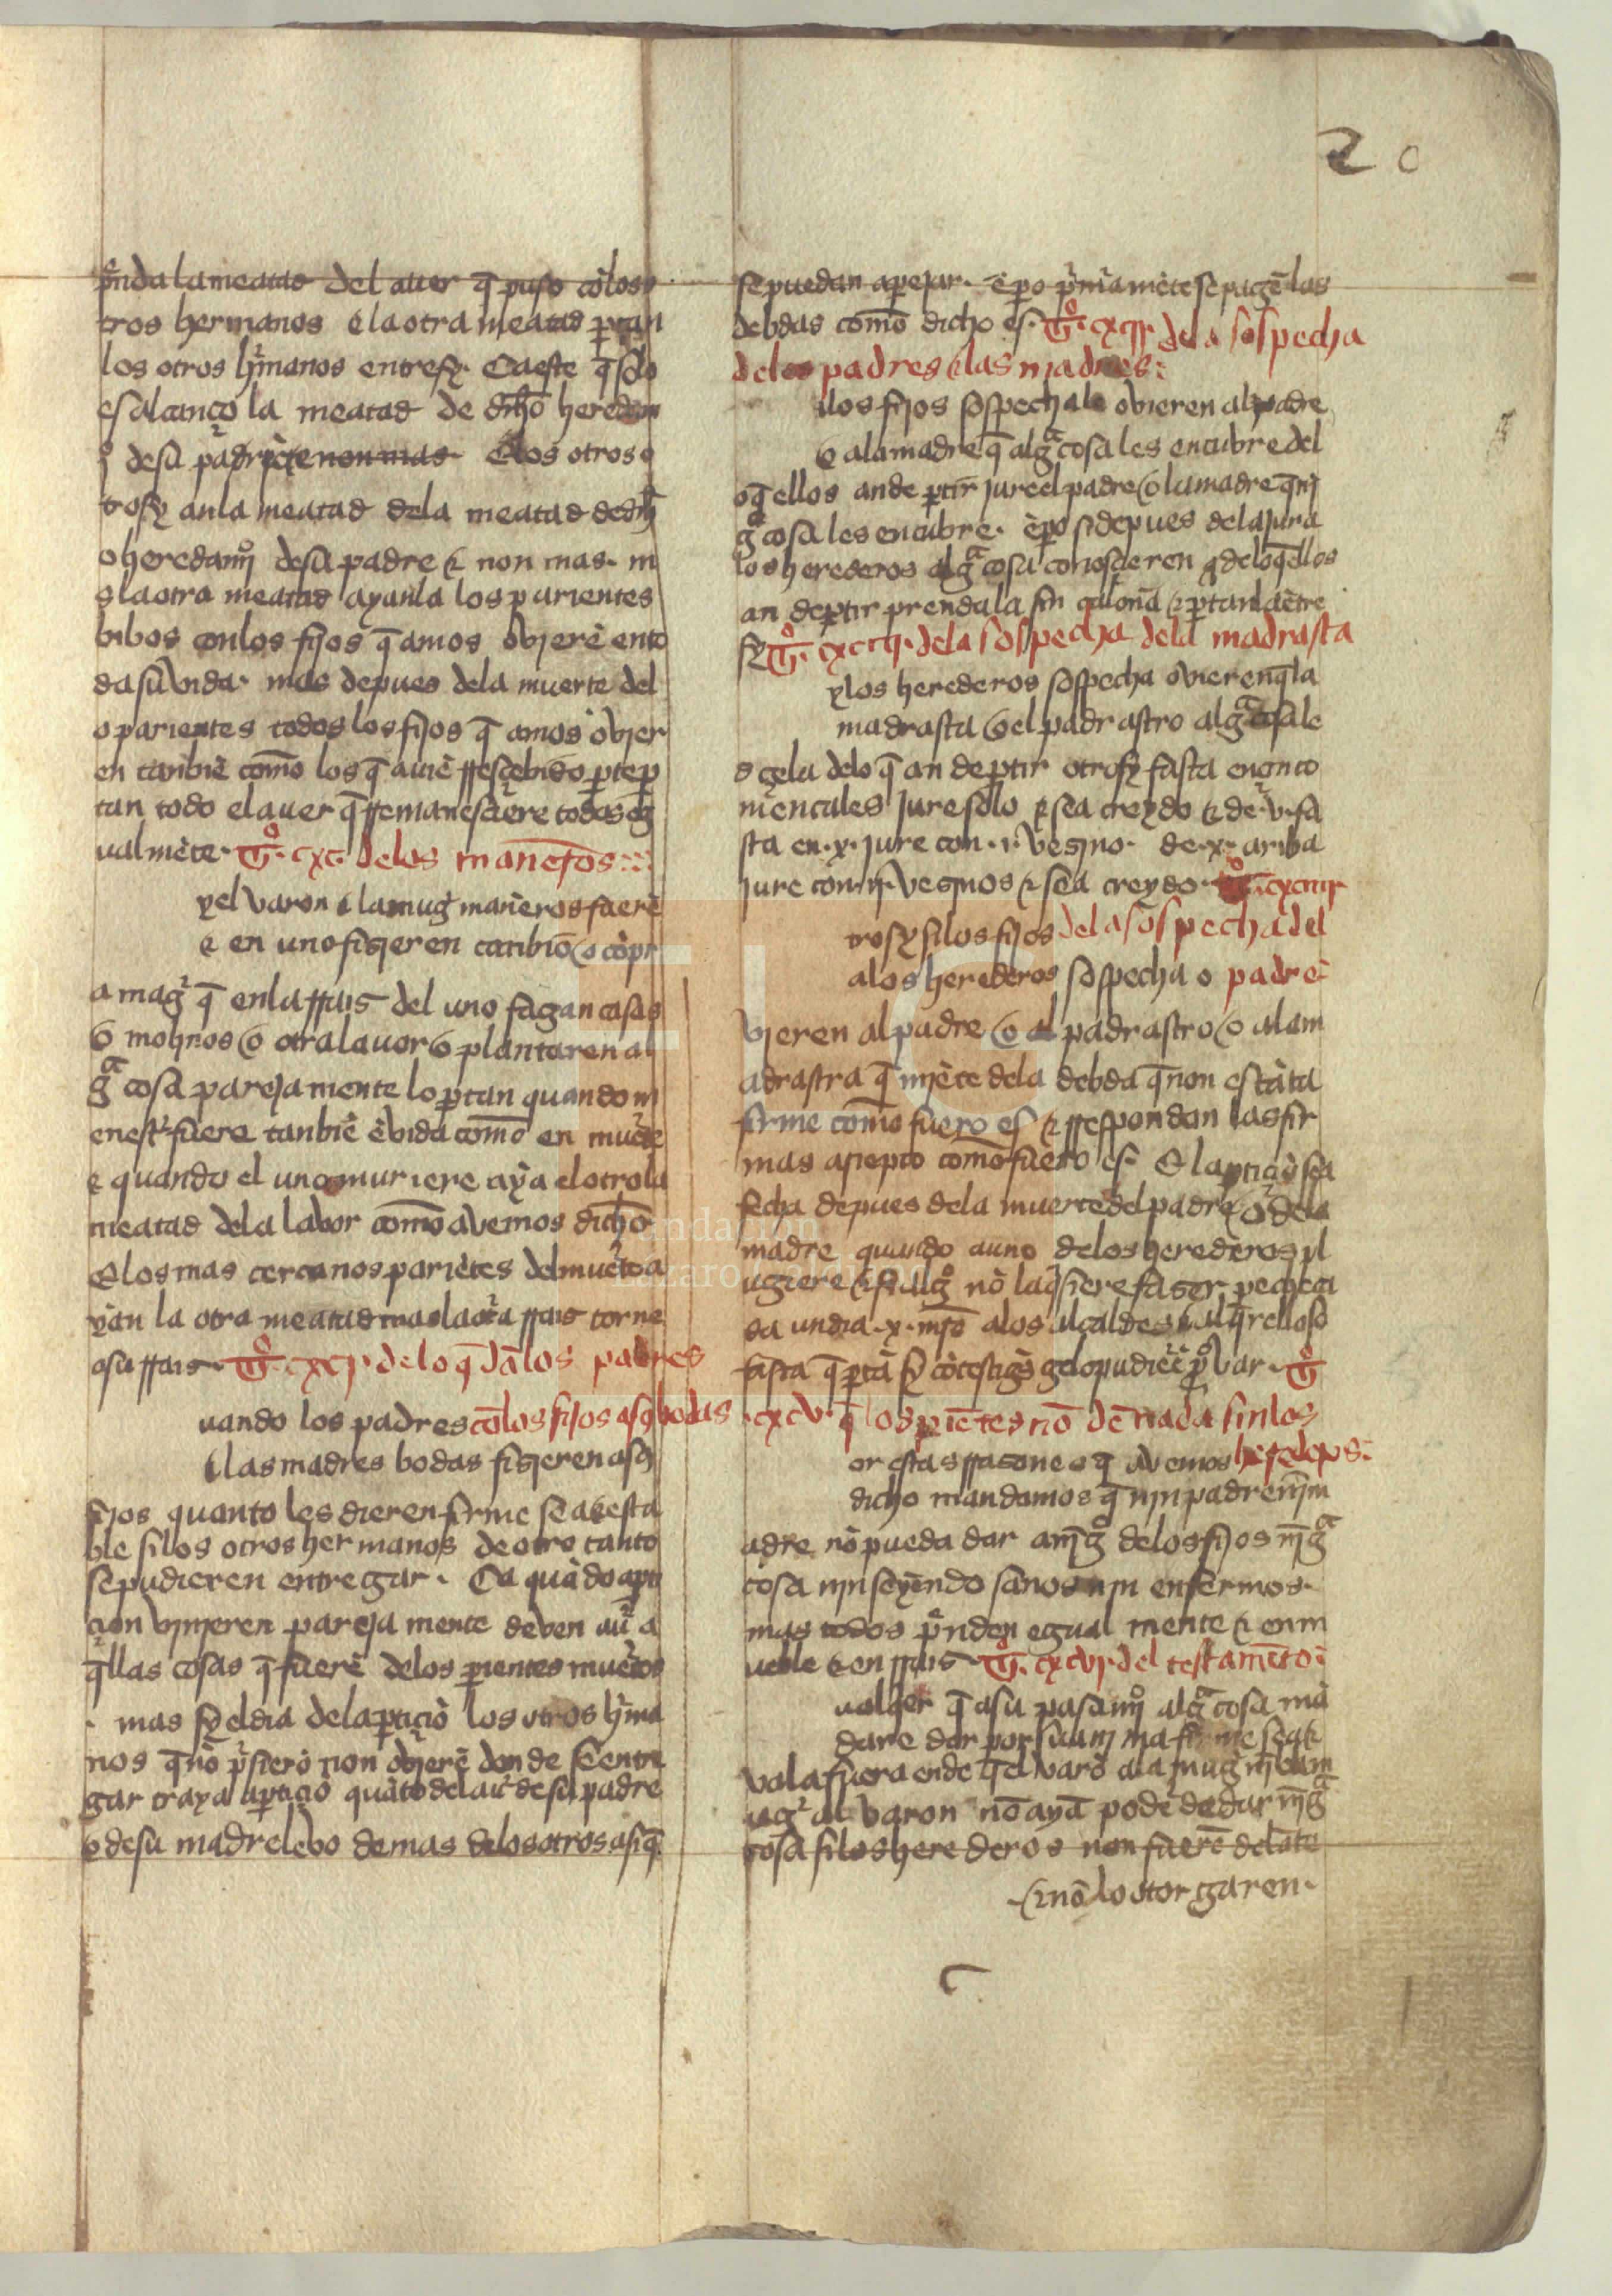 20
p̃nda la meatad del auer q̃ puso cõ los o
tros hermanos e la otra meatad ꝑtan
los otros hr̃manos entresy. E a este q̃ solo
es alcanço la meatad de dicħo heredam
desu padr non mas E los otros o
trosy an la meatad dela meatad de dicħ
o heredamj̊ desu padre ⁊ non mas. m
s la otra meatad ayanla los parientes
bibos con los fijos q̃ amos ovierẽ en to
da su vida. mas depues dela muerte del
o parientes todos los fijos q̃ amos ovier
en tanbiẽ com̃o los q̃ auiẽ rresçebido ꝑte ꝑ
tan todo el auer q̃ rremanesçiere todos eg
ual mẽte. T̊. cxc. delos mañeros:
y el varon e la mug̃ mañeros fuerẽ
e en uno fizieren canbiõ o cõpr
a mag̃ q̃ en la rrais del uno fagan casas
o molinos o otra lauor o plantaren al
gᵃ cosa pareja mente lo ꝑtan quando m
enestr̃ fuere tanbiẽ ẽ vida com̃o en muẽte
e quando el uno muriere aya el otro la
meatad dela labor com̃o avemos dicħo
E los mas cercanos pariẽtes del muẽto a
yan la otra meatad mas la otra rrais torne
asu rrais. T̊. cxcj. delo q̃ dã los padres
uando los padres cõ los fijos asus bodas
e las madres bodas fizieren asus
fijos quanto les dieren firme sea e esta
ble si los otros hermanos de otro tanto
se pudieren entregar. Ca quãdo a ꝑti
çion vinjeren pareja mente deven au̾ a
q̃llas cosas q̃ fuerẽ delos ꝑientes muẽtos
. mas sy el dia dela ꝑtiçiõ los otros hr̃ma
nos q̃ nõ p̃sierõ non oujerẽ don de se entre
gar traya a ꝑtiçiõ quãto del au̾ de su padre
o desu madre lebo demas delos otros asi q̃
se puedan aꝑejar. ẽꝑo p̃mamẽte se pagẽ las
debdas com̃o dicho es. T̊. cxcij. dela sospecha
delos padres e las madres:
los fijos sospechale ovieren al padre
e ala madre q̃ algᵃ cosa les encubre del
o q̃ ellos an de ꝑtir jure el padre o la madre q̃ nj
gᵃ cosa les encubre. ẽꝑo si depues dela jura
los herederos algᵃ cosa conosçieren q̃ delo q̃ ellos
an de ꝑtir prendala sin caloña ⁊ ꝑtanla ẽtre
sy T̊. cxciij. dela sospecha dela madrasta
y los herederos sospecha ovieren q̃ la
madrasta o el padrastro algᵃ cosa le
s çela delo q̃ an de ꝑtir otrosy fasta en çinco
mencales jure solo ⁊ sea creydo ⁊ de .v. fa
sta en .x. jure con .i. vezino. de .x. ariba
jure con .ij. vezinos ⁊ sea creydo. T̊. cxciiij
trosy si los fijos dela sospecha del
alos herederos sospecha o padre
vieren al padre o al padrastro o ala m
adrastra q̃ mjẽte dela debda q̃ non esta ta
firme com̃o fuero es ⁊ rrespondan las fir
mas a riepto com̃o fuero es. E la ꝑtiçiõ sea
fecha depues dela muerte del padre o dela
madre quando a uno delos herederos pl
ugiere ⁊ si algũo nõ la q̃siere fazer peche ca
da un dia .x. mr̃s alos alcaldes e al q̃relloso
fasta q̃ ꝑtã sy cõ testigos gelo pudierẽ p̃var. T̊
. cxcv. q̃ los pietes nõ dẽ nada sin los
or estas rrazones q̃ avemos herederos:
dicho mandamos q̃ nin padre nj̃ m
adre nõ pueda dar a nj̃gº delos fijos nj̃gᵃ
cosa nin seyendo sanos nin enfermos.
mas todos p̃nden egual mente ⁊ en m
ueble e en rrais T̊. cxcvj. del testamẽto:
ualqer q̃ asu pasamj̊ algᵃ cosa mã
dare dar por su anj̃ma firme sea e
vala fuera ende q̃ el varõ ala mug̃ nj̃ la m
ug̃ al varon nõ ayã podẽ de dar nj̃gᵃ
cosa si los herederos non fuerẽ delãte
⁊ nõ lo otorgaren.